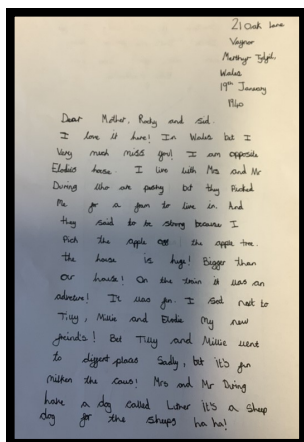 21 Oak Lane
Vaynor
Merthyr Tydfil
Wales
19th January
1940
Dear Mother, Rocky and Sid.
I love it here! In Wales but I
Very much miss you! I am opposite
Elodies house. I live with Mrs and Mr
During who are but they Picked
Me for a farm to live in. And
they said to be strong because I
Pick the apple off the apple tree.
the house is huge! Bigger than
our house! On the train it was an
adventure! It was fun. I sat next to
Tilly, Millie and Elodie my new
freind's! But Tilly and Millie went
to places Sadly, but it's fun
milken the cows! Mrs and Mr During
have a dog called it's a sheep
dog for the sheeps ha ha!